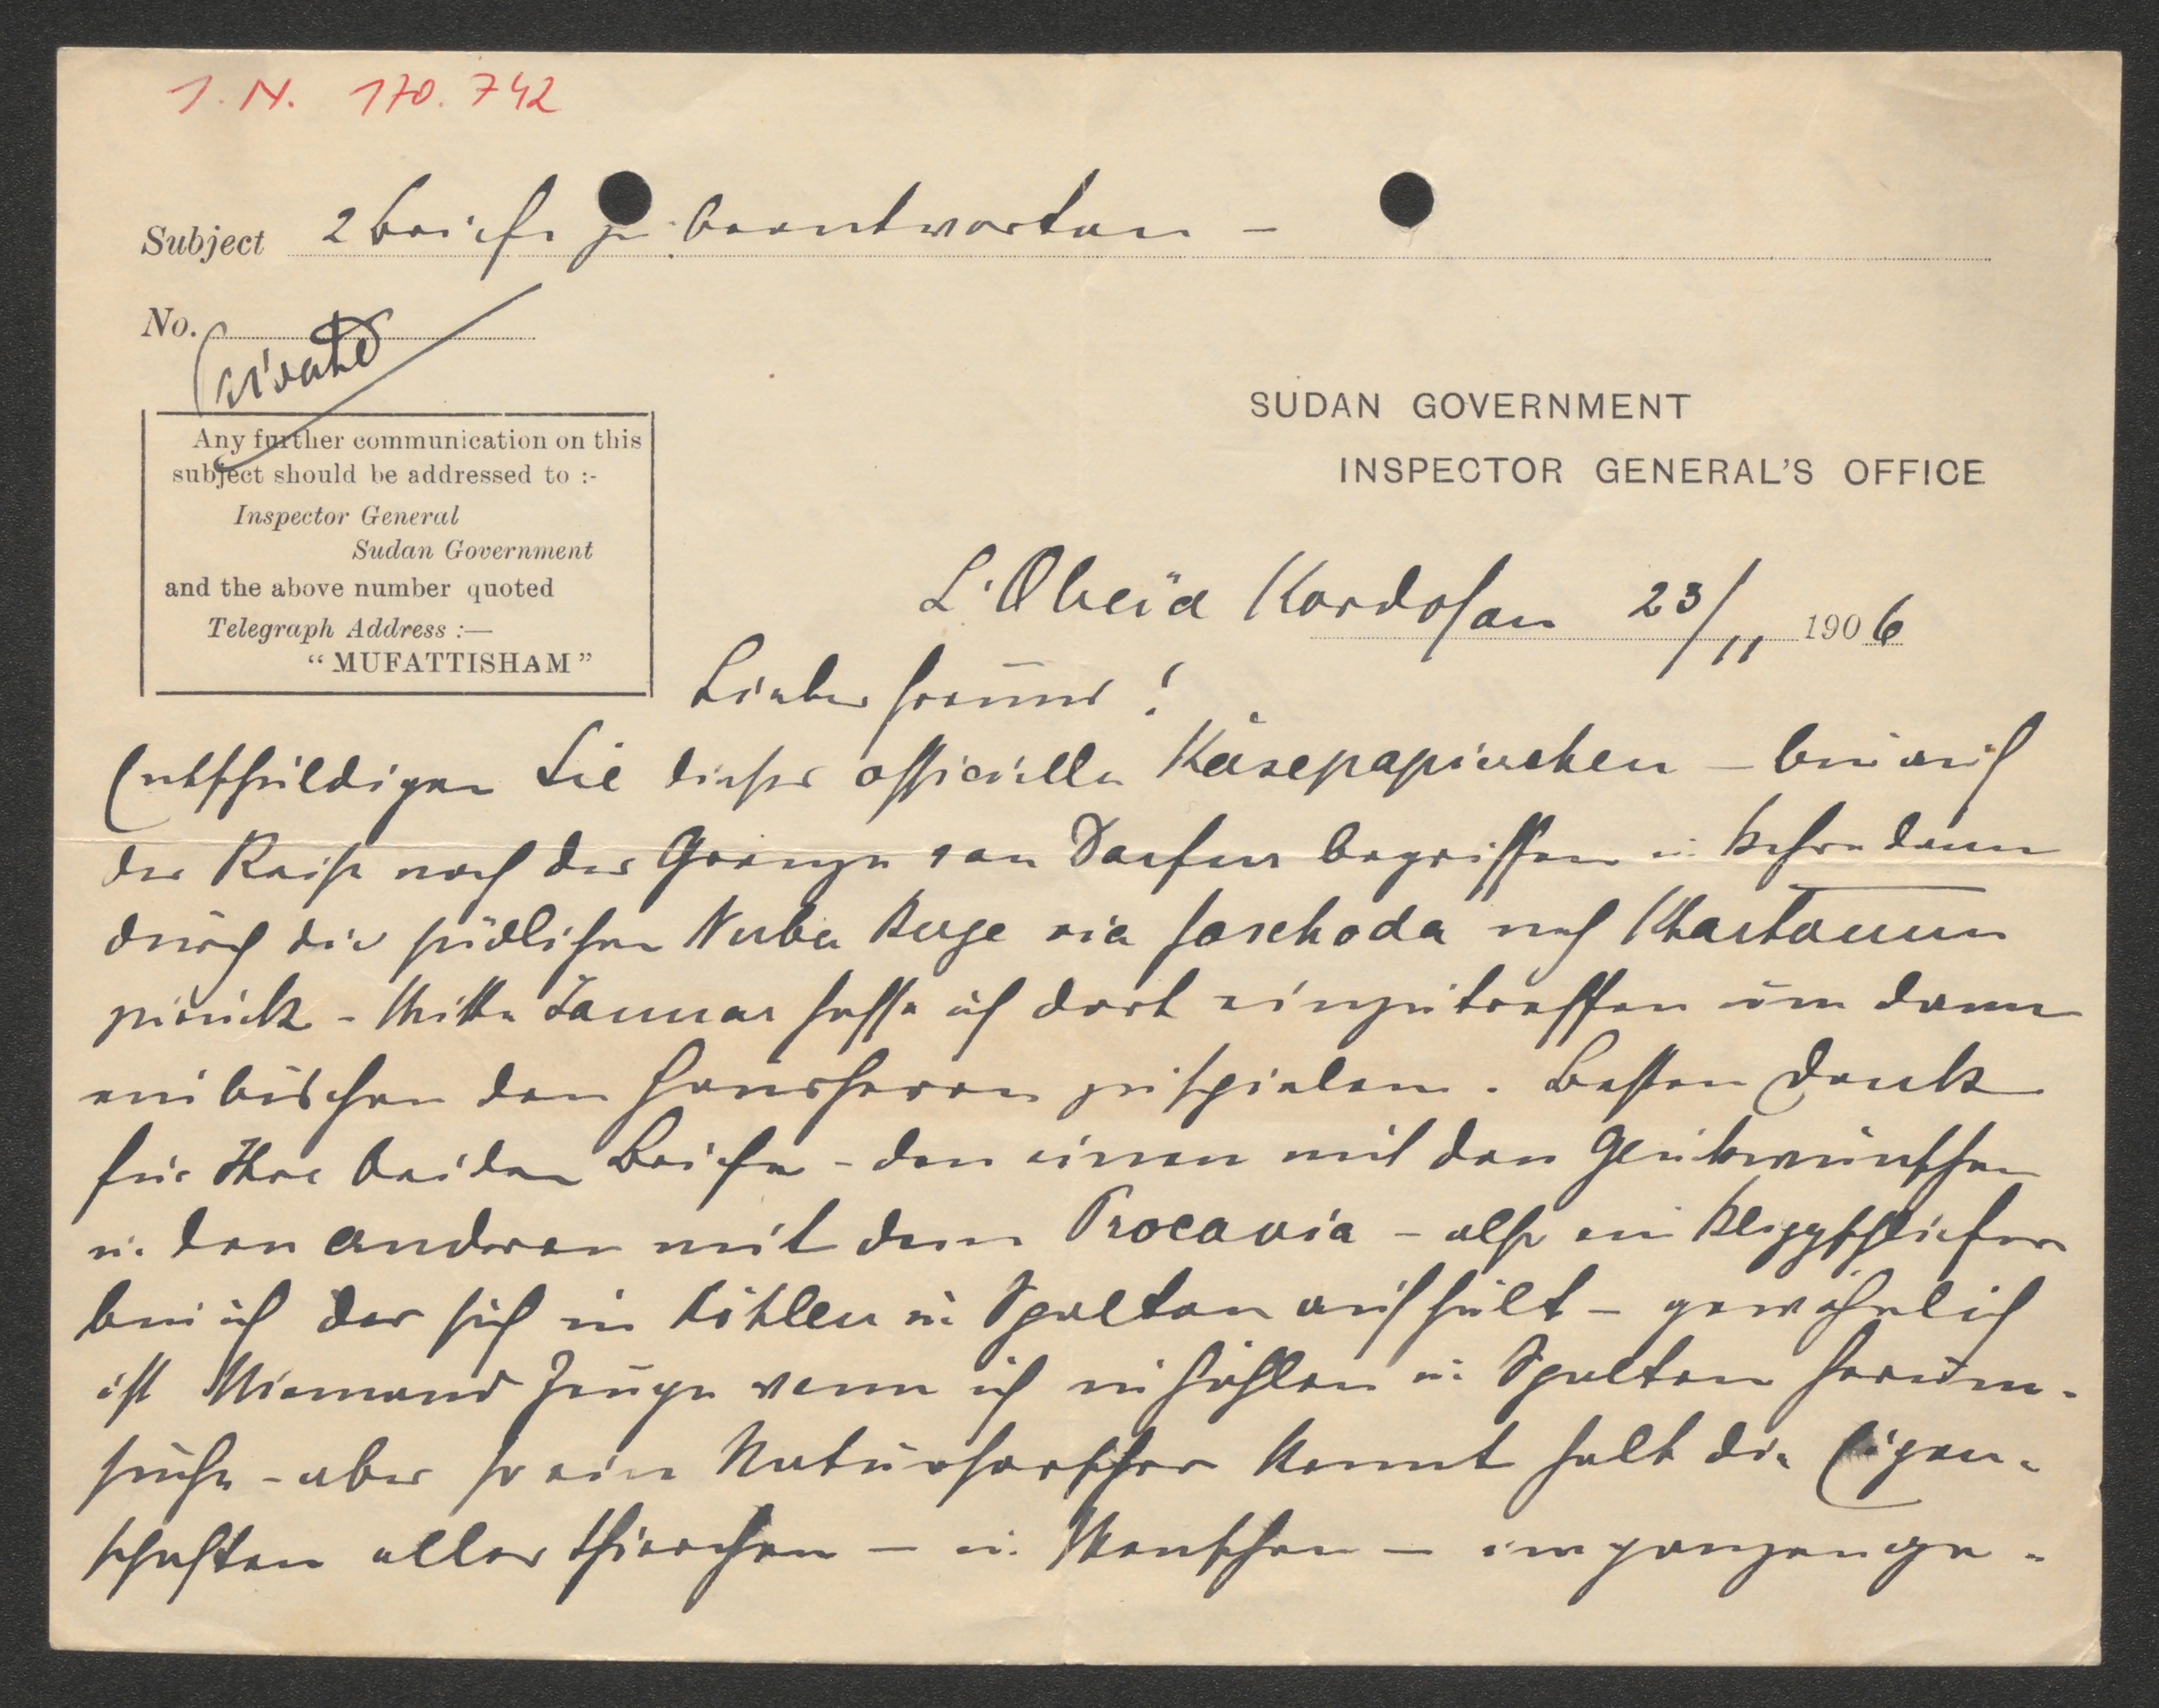 I. N. 170.742
Subject 2 Briefe zu beantworten -
No.
Private
Any further communication on this
subject should be addressed to :-
Inspector General
Sudan Government
and the above number quoted
Telegraph Address :—
"MUFATTISHAM"
SUDAN GOVERNMENT
INSPECTOR GENERAL'S OFFICE
L'Obeïd Kordofan 23/11 1906
Lieber Freund!
Entschuldigen Sie dieses officielle Käsepapierchen – bin auf
der Reise nach der Grenze von Darfur begriffen u. kehre dann
durch die südlichen Nuba Berge via Faschoda nach Khartoum
zurück - Mitte Januar hoffe ich dort einzutreffen um dann
ein bischen den Hausherren zu spielen. Besten Dank
für Ihre beiden Briefe - den einen mit den Glückwünschen
u. den anderen mit dem Procavia - also ein Klippschliefer
bin ich der sich in Höhlen u. Spalten aufhält - gewöhnlich
ist Niemand Zeuge wenn ich in Höhlen u. Spalten herum-
suche - aber so ein Naturforscher kennt halt die Eigen-
schaften aller Thierchen – u. Menschen – im ganzen ge-